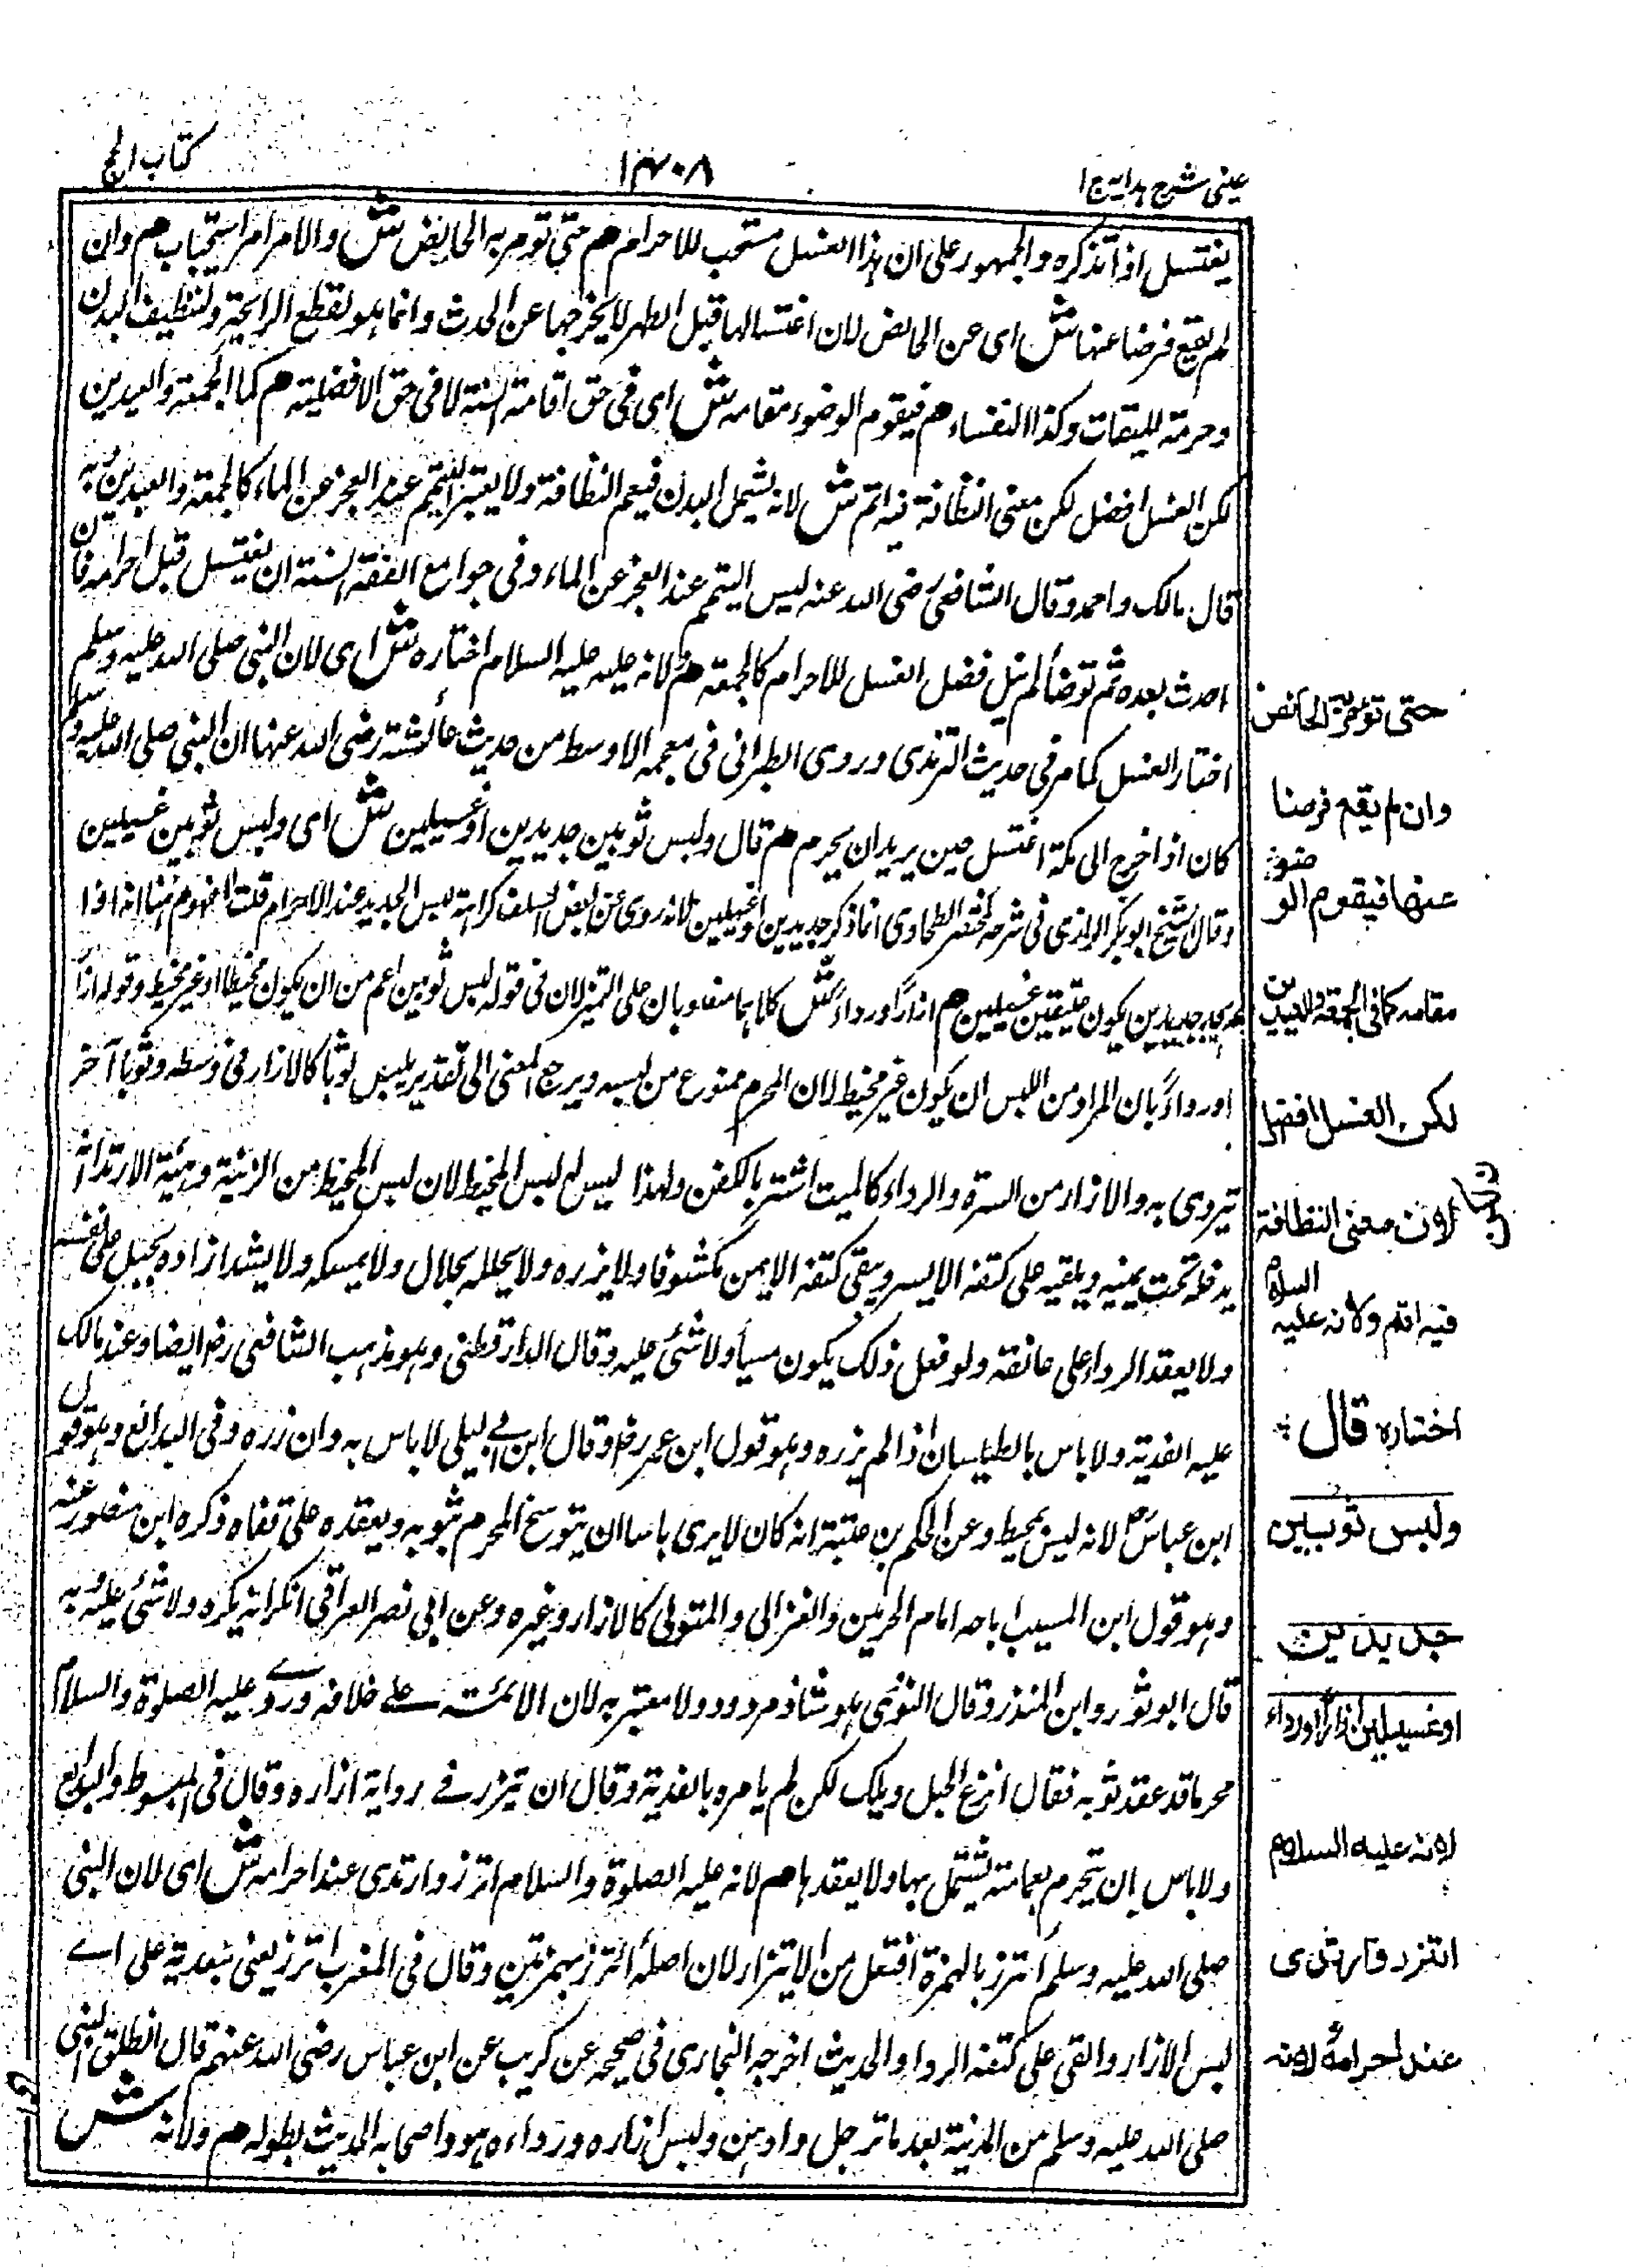 عینی شرح ہدایہ ج ا
۱۴۰۸
کتاب الحج
یغتسل اذا تذکره والجمهور علی ان هذا الغسل مستحب للاحرام هم حتی تومر به الحایض ش والامر امر استحباب هم وان
لم یقع فرضا عنها ش ای عن الحائض لان اغتسالها قبل الطهر لا یخرجها عن الحدث وانما هو لقطع الرایحة ولتنظیف البدن
وحرمة للمیقات وکذا النفساء هم فیقوم الوضوء مقامه ش ای فی حق اقامة السنة لا فی حق الافضلیة هم کما الجمعة والعیدین
لکن الغسل افضل لکن معنی النظافة فیه اتم ش لانه یشمل البدن فیعم النظافة ولا یعتبر التیمم عند العجز عن الماء کالجمعة والعیدین وبه
قال مالک واحمد وقال الشافعی رضی الله عنه لیس التیمم عند العجز عن الماء وفی جوامع الفقه السنة ان یغتسل قبل احرامه فان
احدث بعده ثم توضأ لم ینل فضل الغسل للاحرام کالجمعة هم ولانه علیه علیه السلام اختاره ش ای لان النبی صلی الله علیه وسلم
اختار الغسل کما مر فی حدیث الترمذی وروی الطبرانی فی معجمه الاوسط من حدیث عائشة رضی الله عنها ان النبی صلی الله علیه وسلم
کان اذا خرج الی مکة اغتسل حین یرید ان یحرم هم قال ولبس ثوبین جدیدین او غسیلین ش ای ولبس ثوبین غسیلین
وقال الشیخ ابو بکر الرازی فی شرحه لمختصر الطحاوی انما ذکر جدیدین او غسیلین لانه روی عن بعض السلف کراهة لبس الجدید عند الاحرام قلت المفهوم هنا انه اذا
جدیدین یکون عتیقین غسیلین هم ازارا ورداء ش کلاهما منصوبان علی التمیز لان فی قوله لبس ثوبین اعم من ان یکون مخیطا او غیر مخیط وقوله ازارا
او رداء بان المراد من اللبس ان یکون غیر مخیط لان المحرم ممنوع من لبسه ویرجع المعنی الی تقدیر یلبس ثوبا کالازار فی وسطه وثوبا آخر
یرتدی به والازار من السرة والرداء کالمیت اشتر بالکفن ولهذا لیس له لبس المخیط لان لبس المخیط من الزینة وهیئة الارتداء ان
یدخله تحت یمینه ویلقیه علی کتفه الایسر ویبقی کتفه الایمن مکشوفا ولا یزره ولا یخلله بخلال ولا یمسکه ولا یشد ازاره بحبل علی نفسه
ولا یعقد الرداء علی عاتقه ولو فعل ذلک یکون مسیأ ولا شئ علیه وقال الدارقطنی وهو مذهب الشافعی رض ایضا وعند مالک
علیه الفدیة ولا باس بالطیلسان اذا لم یزره وهو قول ابن عمر رض وقال ابن ابی لیلی لا باس به وان زره وفی البدائع وهو قول
ابن عباس رض لانه لیس بمحیط وعن الحکم بن عتیبة انه کان لا یری باسا ان یتوشح المحرم بثوبه ویعقده علی قفاه ذکره ابن منصور عنه
وهو قول ابن المسیب اباحه امام الحرمین والغزالی والمتولی کالازار وغیره وعن ابی نصر العراقی انکر انه یکره ولا شئ علیه وبه
قال ابو ثور وابن المنذر وقال النووی هو شاذ مردود ولا معتبر به لان الائمة علی خلافه وروی علیه الصلوة والسلام
محرما قد عقد ثوبه فقال انزع الحبل ویلک لکن لم یامره بالفدیة وقال ان یتزر فی روایة ازاره وقال فی المبسوط والبدائع
ولا باس بان یتحرم بعمامة یشتمل بها ولا یعقدها هم لانه علیه الصلوة والسلام اتزر وارتدی عند احرامه ش ای لان النبی
صلی الله علیه وسلم ائتزر بالهمزة افتعل من الایتزار لان اصله ائتزر بهمزتین وقال فی المغرب اتزر یعنی بتعدیة علی ای
لبس الازار والقی علی کتفه الرداء والحدیث اخرجه البخاری فی صحیحه عن کریب عن ابن عباس رضی الله عنهم قال انطلق النبی
صلی الله علیه وسلم من المدینة بعد ما ترجل وادهن ولبس ازاره ورداءه هو واصحابه الحدیث بطوله هم ولانه ش
حتی تومر به الحائض
وان لم یقع فرضا
عنها فیقوم الوضوء
مقامه کما فی الجمعة والعیدین
لکن الغسل افضل
لان معنی النظافة
فیه اتم ولانه علیه السلام
اختاره قال
ولبس ثوبین
جدیدین
او غسیلین ازارا ورداء
لانه علیه السلام
ائتزر وارتدی
عند احرامه ولانه